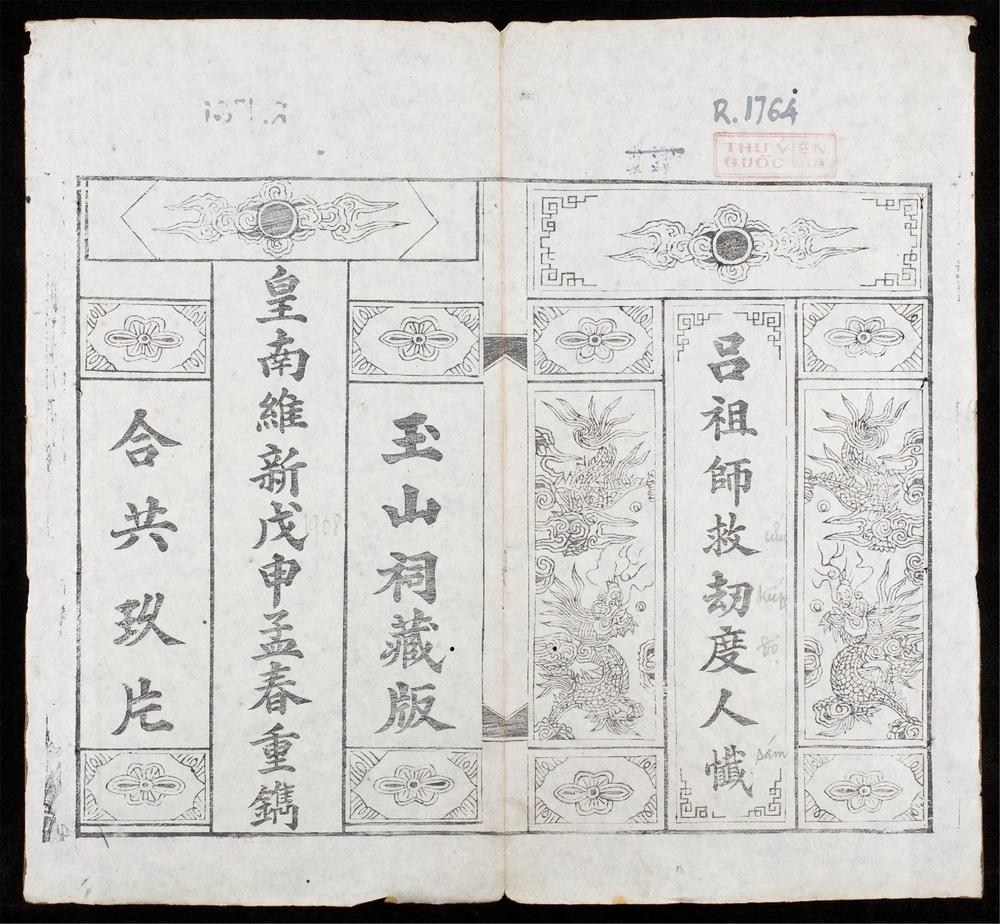 R.1764
THƯ VIỆN
QUỐC GIA
呂祖師救劫度人懺
cứu
kiếp
độ
sám
玉山祠藏版
皇南維新戊申孟春重鐫
1908
合共玖片